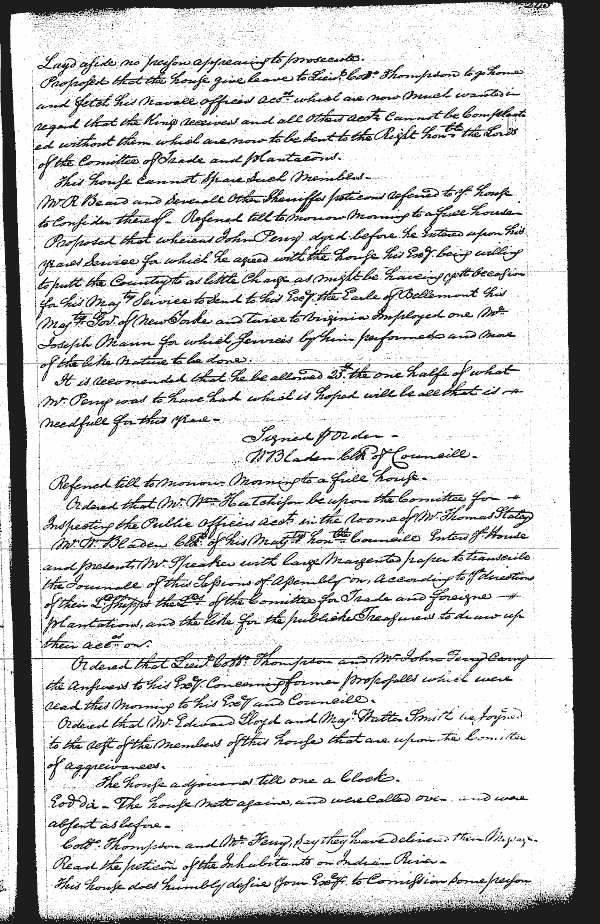 Layd aside no person appearing to prosecute.
Proposed that the house give leave to Lieut. Collo. Thompson to go home
and fetch his navall officers accts. which are now much wanted in
regard that the Kings receivers and all others accts. cannot be Compleat
ed without them which are now to be sent to the Right honble. the Lords
of the Comittee of Trade and plantacons.
This house cannot spare such Members.
Mr. R Beard and severall other Sheriffes peticons referred to ye. house
to Consider thereof. Referred till to morrow Morning to a full house
Proposed that whereas John Perry dyed before he Entered upon his
years service for which he agreed with the house his Excy. being willing
to putt the Country to as little Charge as might be haveing yett occasion
for his Matys. Service to send to his Excy. the Earle of Bellemont his
Matys. Govr. of New Yorke and twice to Virginia Imployed one Mr.
Joseph Mann for which services by him performed and more
of the like nature to be done.
It is recomended that he be allowed 25£. the one halfe of what
Mr. Perry was to have had which is hoped will be all that is
needfull for this year.
Signed p Order.
W Bladen Clk of Councill.
Referred till to morrow Morning to a full house.
Ordered that Mr. Wm. Hutchison be upon the Comittee for
Inspecting the Public officers accts. in the roome of Mr. Thomas Staley
Mr. W. Bladen Clk. of his Matys. honble. Councill Enters ye. House
and presents Mr. Speaker with large Margented paper to transcribe
the Journall of this Sessions of Assembly on, according to ye. directions
of their Ldshipps the Lds. of the Comittee for Trade and foreigne
plantations, and the like for the publick Treasurers to draw up
their accts. on.
Ordered that Lieut. Collo. Thompson and Mr. John Ferry Carry
the Answers to his Excy. Concerning former proposalls which were
read this morning to his Excy. and Councill.
Ordered that Mr. Edward Lloyd and Majr. Smith be Joyned
to the rest of the members of this house that are upon the Comittee
of aggreivances.
The house adjournes till one a Clock.
Eod Die. The house Mett againe, and were called over and were
absent as before.
Collo. Thompson and Mr. Ferry, say they have delivered their Message.
Read the peticon of the Inhabitants on Indian River.
This house does humbly desire Your Excy. to Comission some person